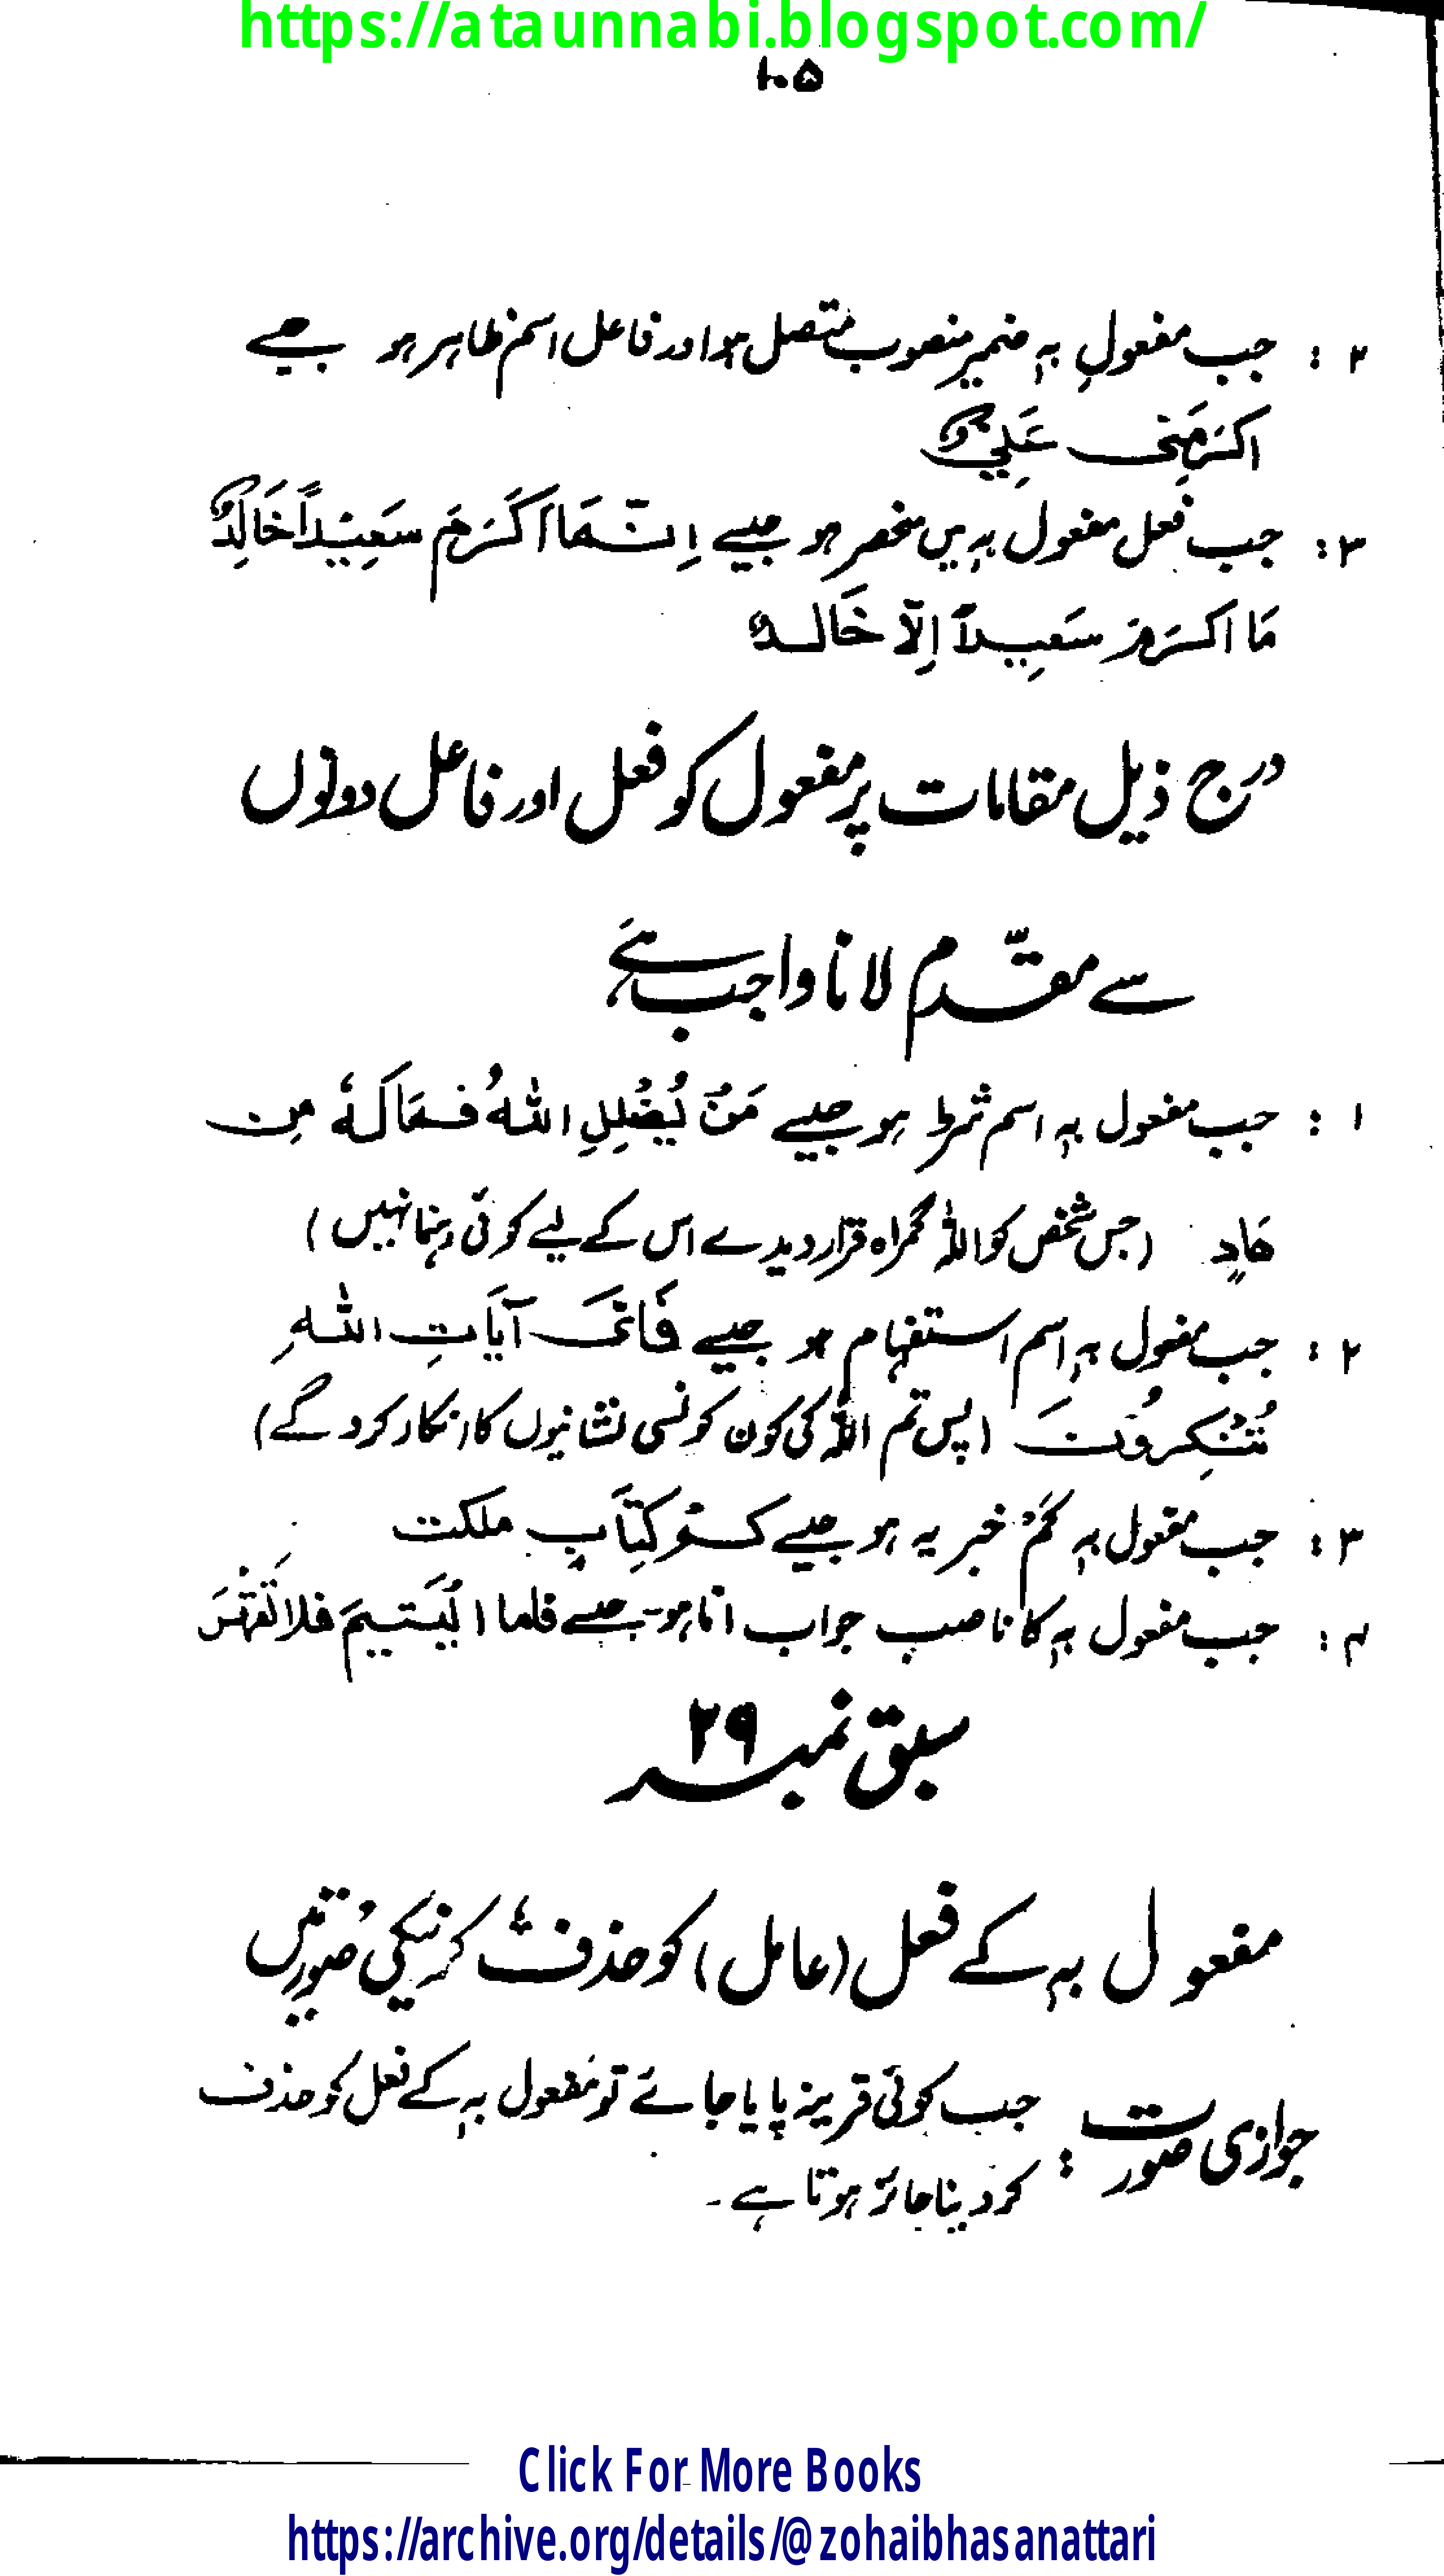 https://ataunnabi.blogspot.com/
۱۰۵
۲ : جب مفعول بہٖ ضمیر منصوب متصل ہو اور فاعل اسم ظاہر ہو جیسے
اکرَمَنِی عَلِیٌّ
۳ : جب فعل مفعول بہٖ میں منحصر ہو جیسے اِنَّمَا اَکْرَمَ سَعِیْداً خَالِدٌ
مَا اکرَمَ سَعِیداً اِلَّا خَالدٌ
درج ذیل مقامات پر مفعول کو فعل اور فاعل دونوں
سے مقدّم لانا واجب ہے
۱ : جب مفعول بہٖ اسم شرط ہو جیسے مَنْ یُضْلِلِ اللهُ فَمَا لَهٗ مِن
هَادٍ (جس شخص کو اللہ گمراہ قرار دیدے اس کے لیے کوئی رہنما نہیں)
۲ : جب مفعول بہٖ اسم استفہام ہو جیسے فَاَیَّ آیَاتِ اللهِ
تُنْکِرُوْنَ (پس تم اللہ کی کون کونسی نشانیوں کا انکار کرو گے)
۳ : جب مفعول بہٖ کَمْ خبریہ ہو جیسے کَمْ کِتَابٍ ملکت
۴ : جب مفعول بہٖ کا ناصب جواب امّا ہو۔ جیسے فاما الْیَتِیمَ فلا تَقْهَرْ
سبق نمبر ۲۹
مفعول بہٖ کے فعل (عامل) کو حذف کرنیکی صورتیں
جوازی صورت : جب کوئی قرینہ پایا جائے تو مفعول بہٖ کے فعل کو حذف
کر دینا جائز ہوتا ہے۔
Click For More Books
https://archive.org/details/@zohaibhasanattari